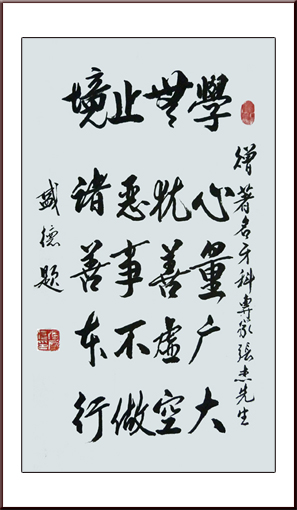 學無止境
贈著名牙科專家張杰先生
心量广大
犹善虚空
恶事不做
诸善奉行
盛德题